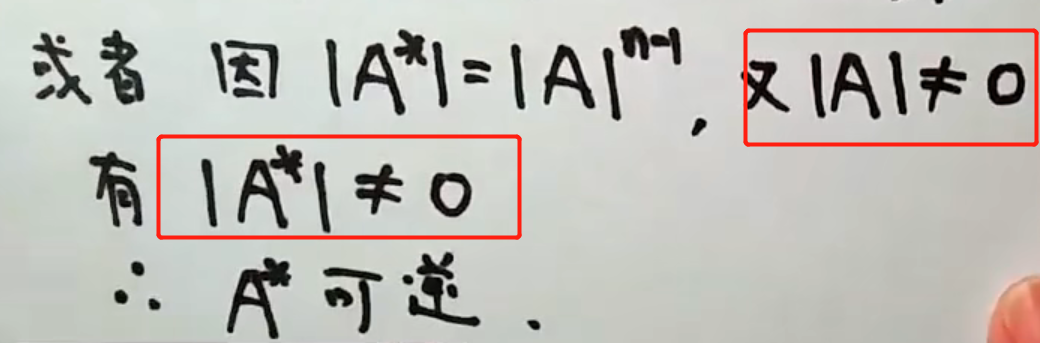 或者 因 |A*|=|A|ⁿ⁻¹, 又|A|≠0
有 |A*|≠0
∴ A* 可逆.